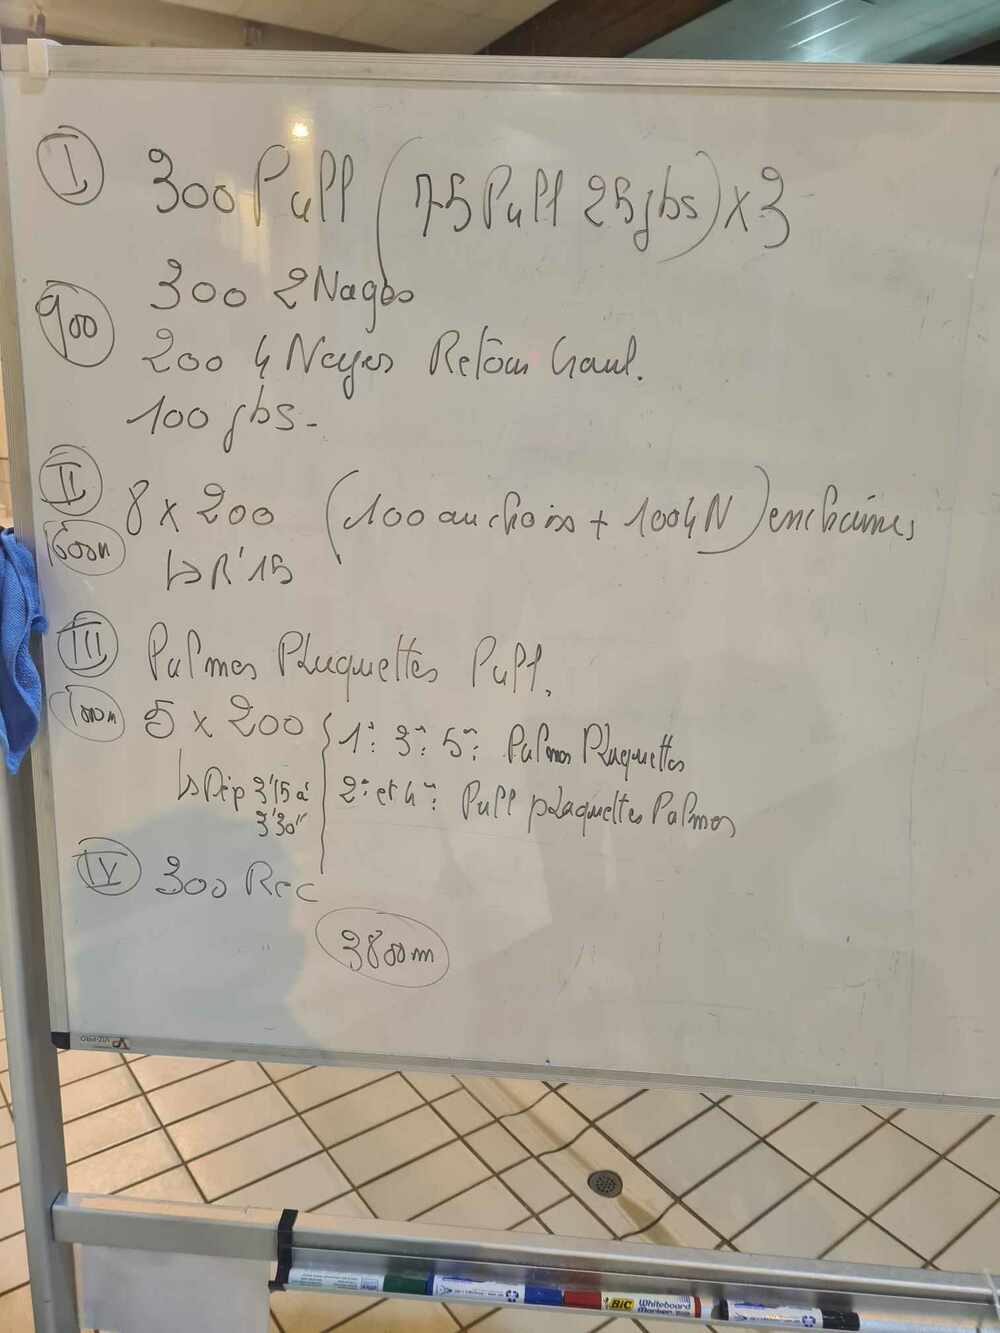 I 300 Pull (75 Pull 25 jbs) x 3
300 2 Nages
900
200 4 Nages Retour Caul.
100 jbs.
II 8 x 200 (100 au choix + 100 4N) enchaînés
1600m
↳ R'15
III Palmes Plaquettes Pull.
1000m 5 x 200 1e: 3e: 5e: Palmes Plaquettes
↳ Dép 3'15 à 2e et 4e: Pull plaquettes Palmes
3'30"
IV 300 Rec
3800m
BIC Whiteboard
Marker